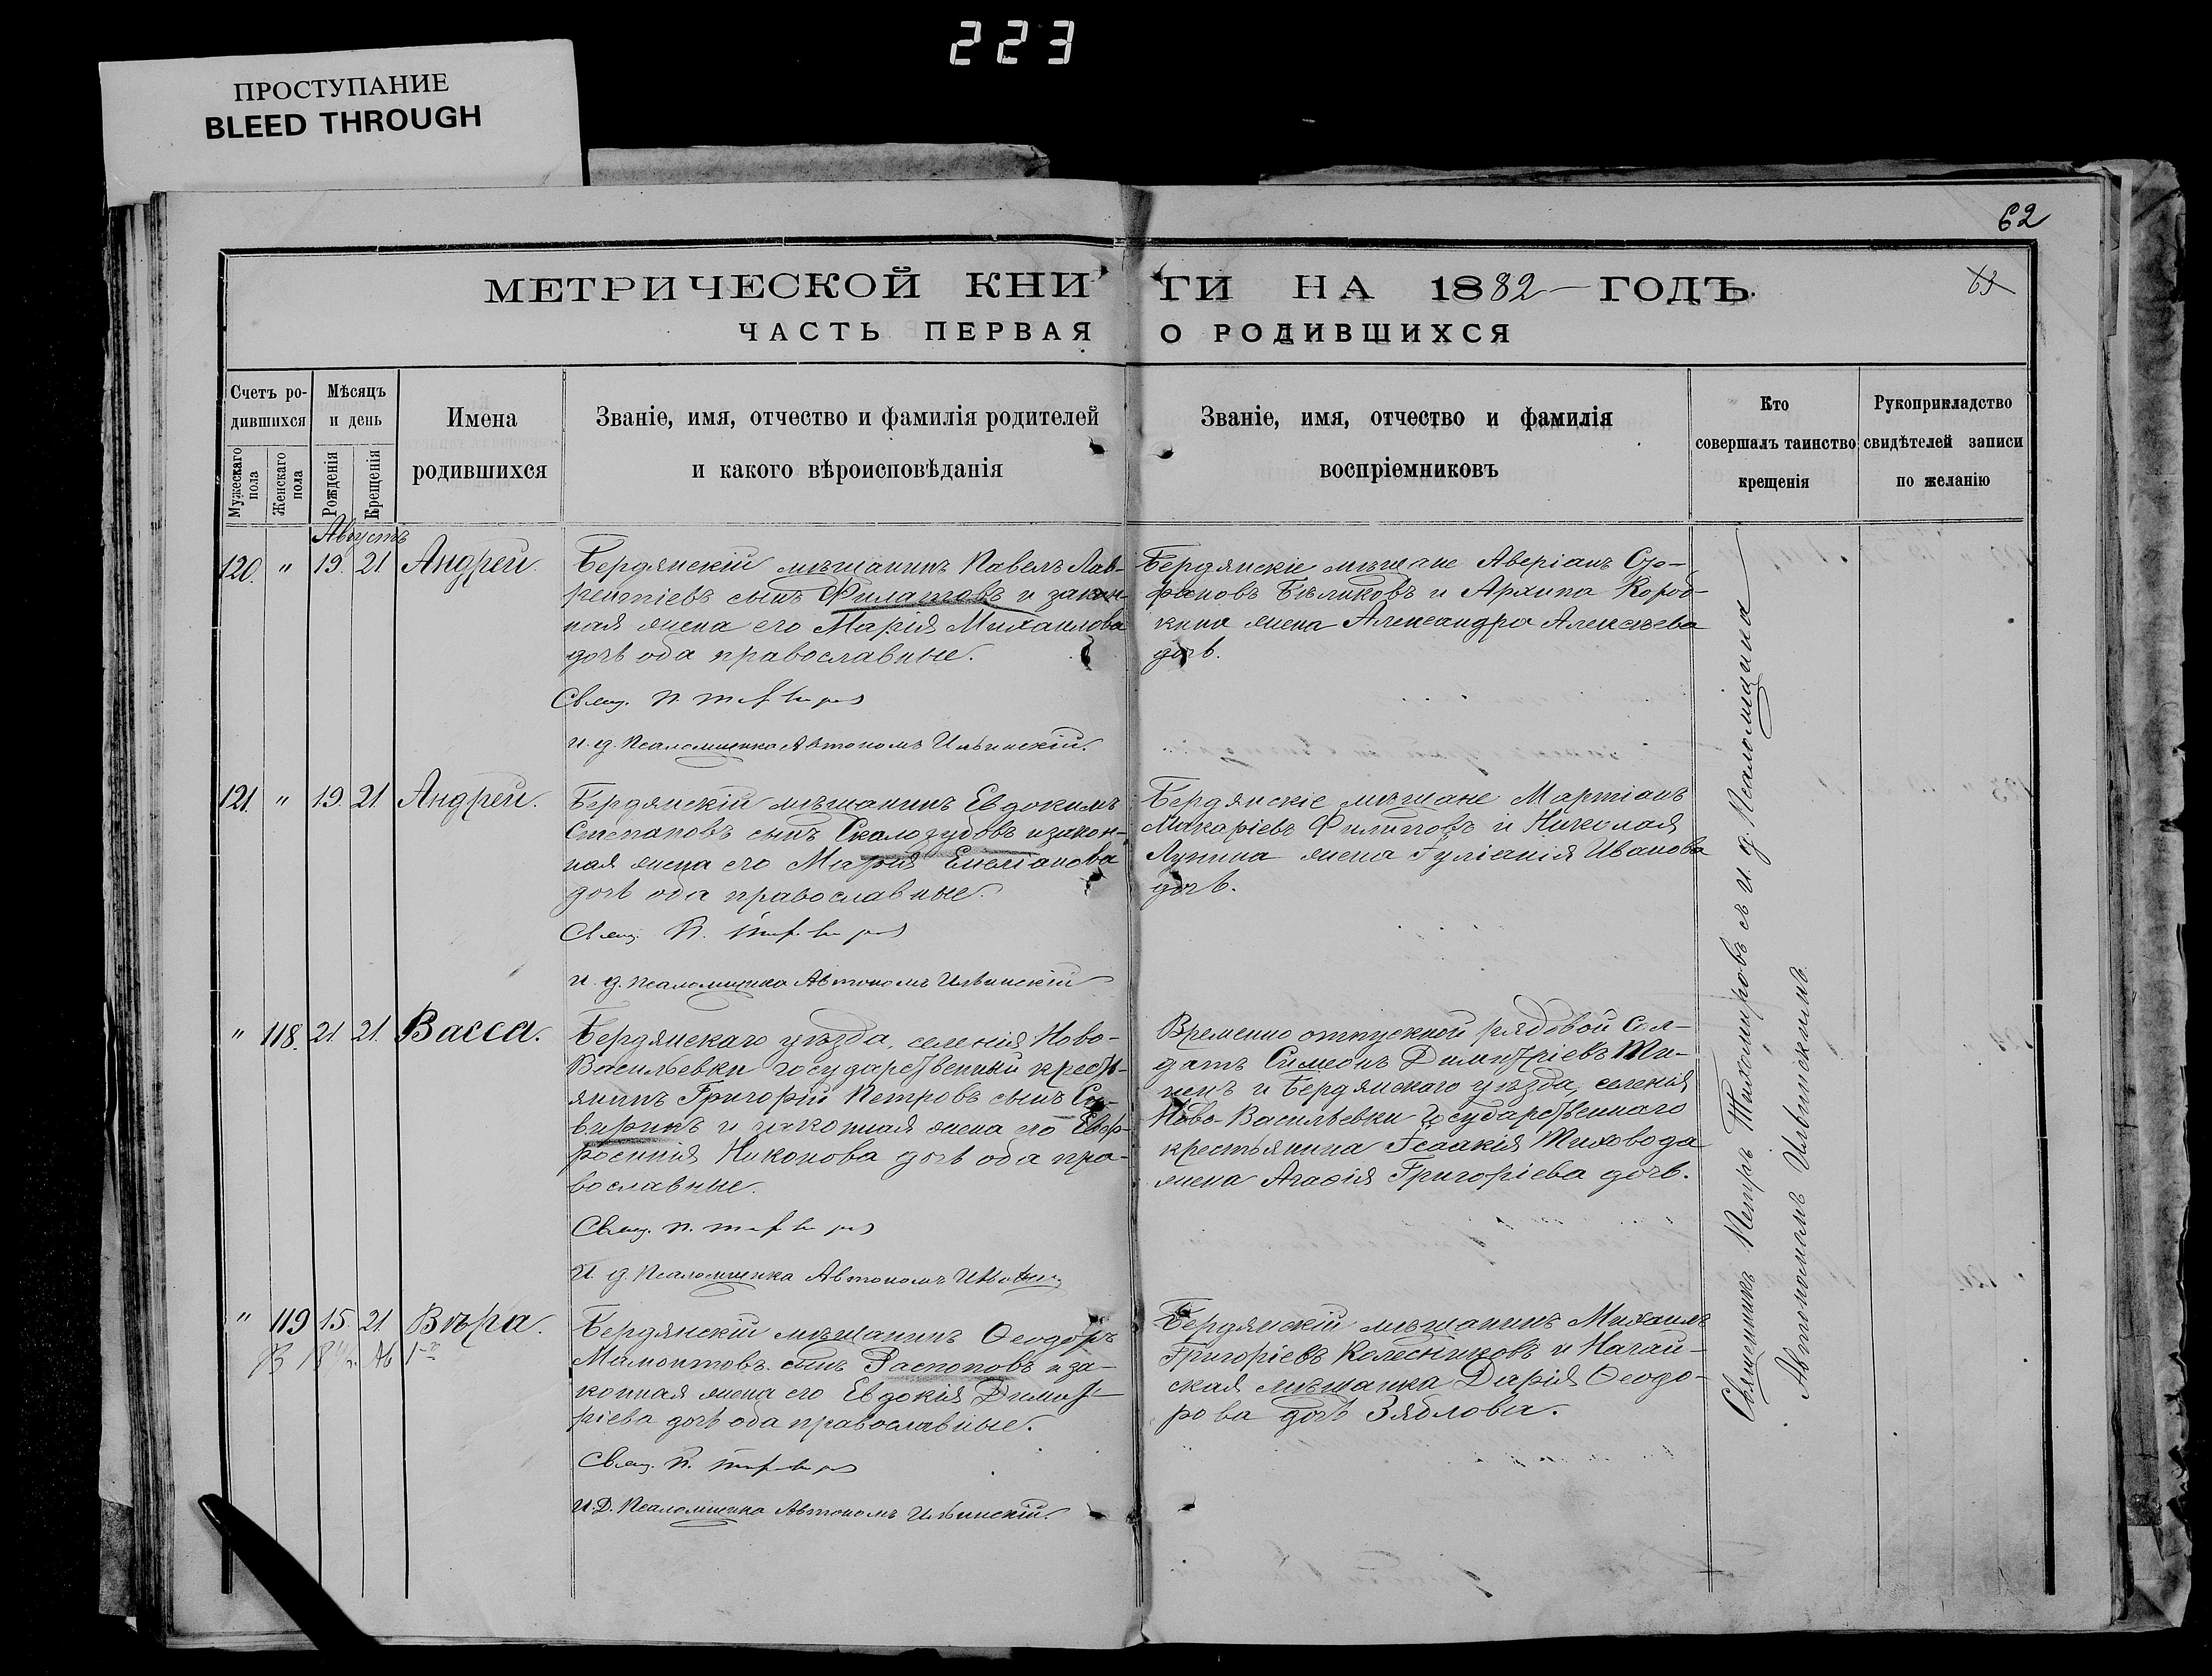 223
ПРОСТУПАНИЕ
BLEED THROUGH
62
63
МЕТРИЧЕСКОЙ КНИГИ НА 1882 ГОДЪ.
ЧАСТЬ ПЕРВАЯ О РОДИВШИХСЯ
Счетъ ро-
дившихся
Мужескаго пола
Женскаго пола
Мѣсяцъ
и день
Рожденія
Крещенія
Имена
родившихся
Званіе, имя, отчество и фамилія родителей
и какого вѣроисповѣданія
Званіе, имя, отчество и фамилія
воспріемниковъ
Кто
совершалъ таинство
крещенія
Рукоприкладство
свидѣтелей записи
по желанію
Августъ
120. " 19. 21 Андрей.
Бердянскій мѣщанинъ Павелъ Лав-
рентіевъ сынъ Филатовъ и закон-
ная жена его Марія Михаилова
дочь оба православные.
Свящ. П.
и. д. Псаломщика Автономъ Ильинскій.
Бердянскіе мѣщане Аверіанъ
Бѣликовъ и Архипа Короб-
кина жена Александра Алексѣева
дочь.
121. " 19. 21. Андрей.
Бердянскій мѣщанинъ Евдокимъ
Степановъ сынъ Скалозубовъ и закон-
ная жена его Марія Емеліанова
дочь оба православные.
Свящ. П.
и. д. псаломщика Автономъ Ильинскій
Бердянскіе мѣщане Мартіанъ
Макаріевъ Филиповъ и Николая
Лунина жена Іуліанія Иванова
дочь.
" 118. 21. 21. Васса.
Бердянскаго уѣзда селенія Ново-
Васильевки государственный кресть-
янинъ Григорій Петровъ сынъ
и законная жена его Евф-
росинія Никонова дочь оба пра-
вославные.
Свящ. П.
И. д. Псаломщика Автономъ
Временно отпускной рядовой Сол-
датъ Симеонъ Димитріевъ
и Бердянскаго уѣзда селенія
Ново-Васильевки государственнаго
крестьянина Ісаакія Тиховода
жена Агаѳія Григоріева дочь.
" 119 15. 21. Вѣра.
Бердянскій мѣщанинъ Ѳеодоръ
Мамонтовъ сынъ Распоповъ и за-
конная жена его Евдокія Димит-
ріева дочь оба православные.
Свящ. П.
И. Д. Псаломщика Автономъ Ильинскій.
Бердянскій мѣщанинъ Михаилъ
Григоріевъ Колесниковъ и Ногай-
ская мѣщанка Дарія Ѳеодо-
рова дочь Зяблова.
Священникъ Петръ Тихомировъ съ и. д. Псаломщика
Автономомъ Ильинскимъ.